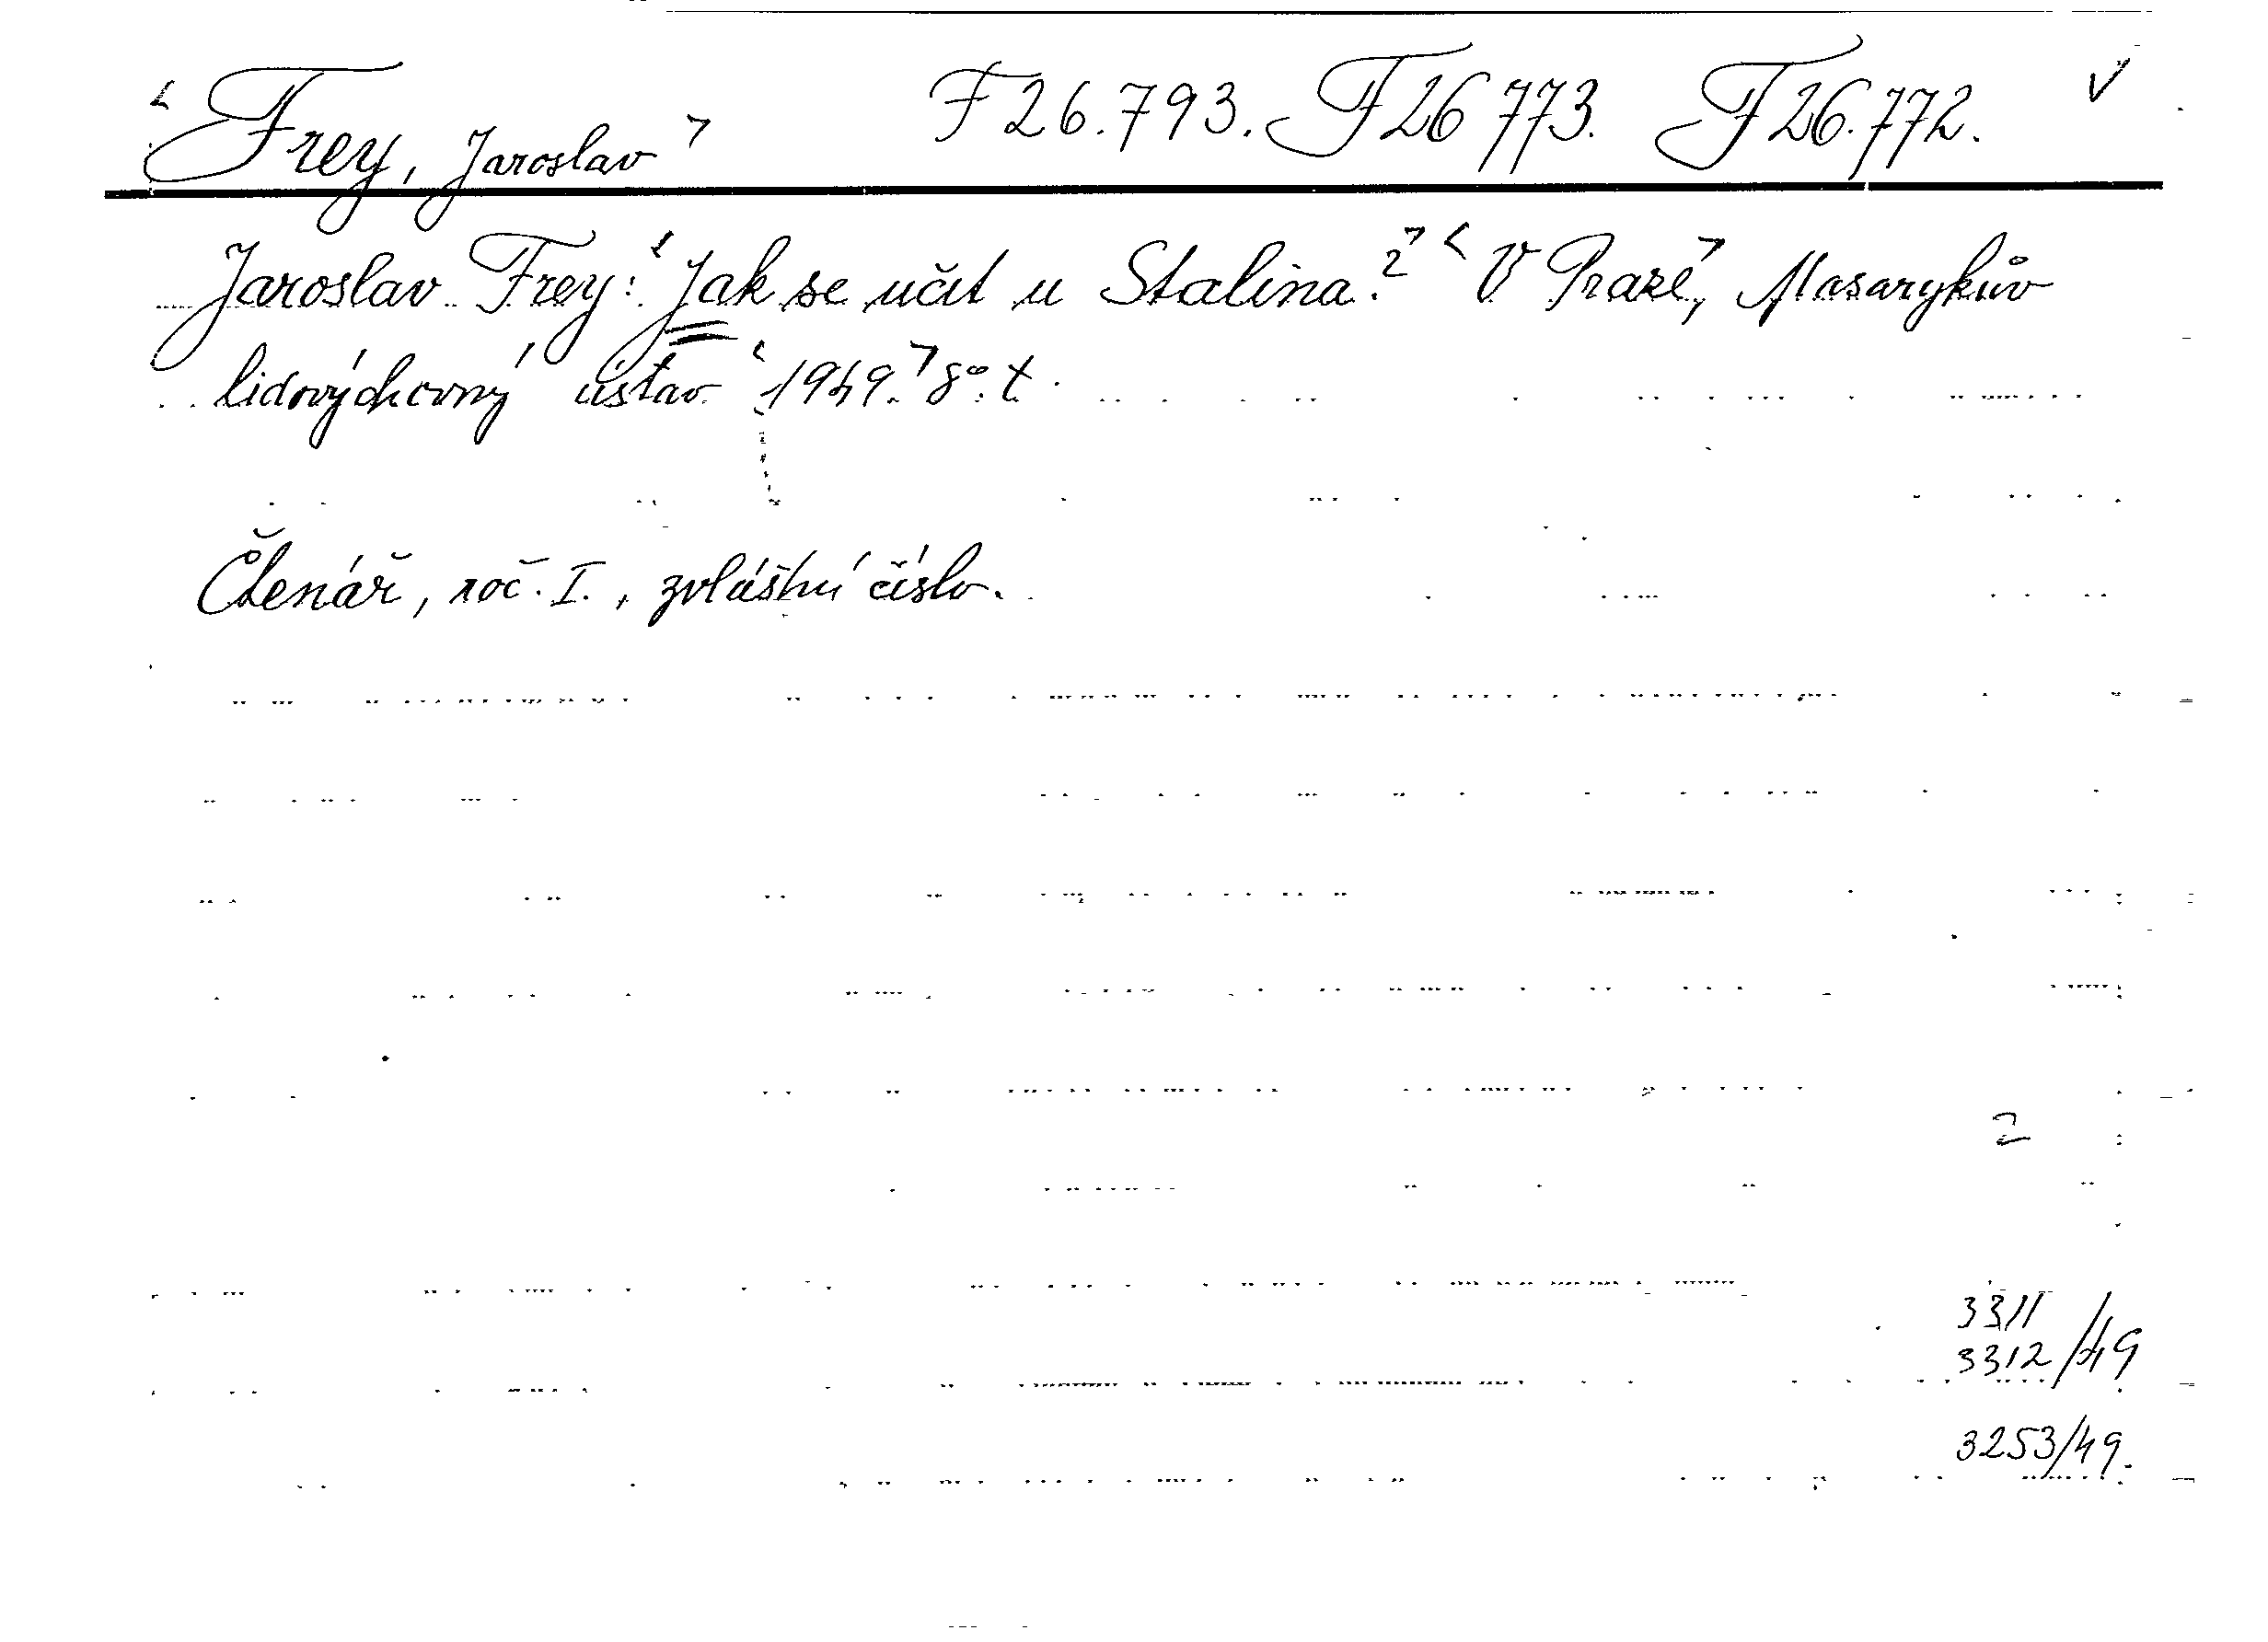 <Frey, Jaroslav> F26.793. F26773. F26.772. V
Jaroslav Frey: <Jak se učit u Stalina?> <V Praze>, Masarykův
lidovýchovný ústav <1949.> 8°. t.
Čtenář, roč. I., zvláštní číslo.
2
3311
3312/49
3253/49.